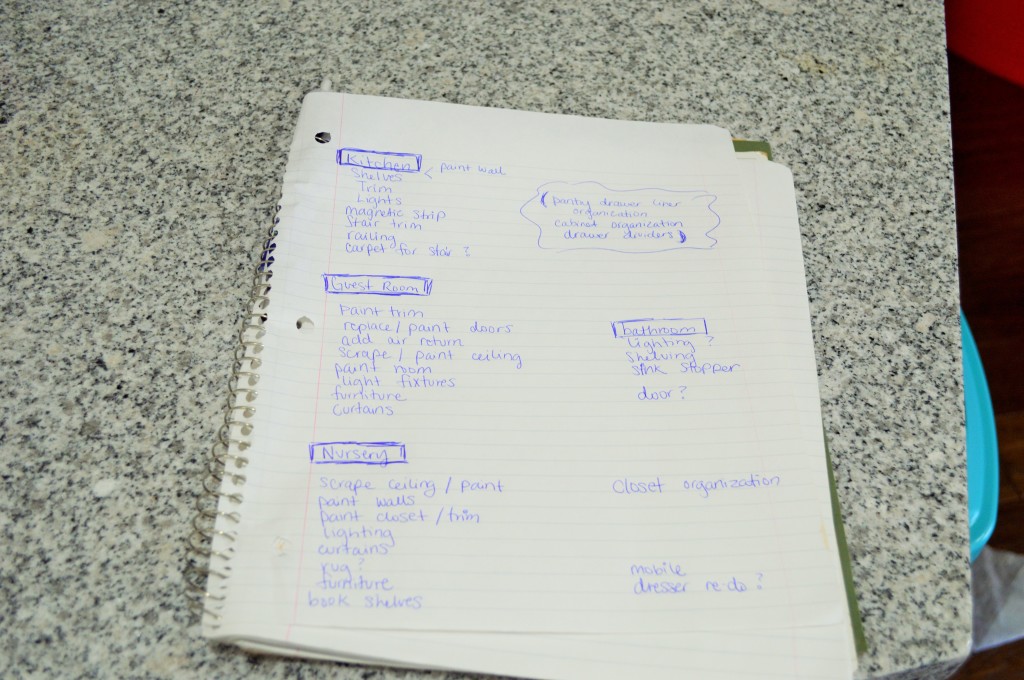 Kitchen
Shelves < paint wall
Trim
Lights
magnetic strip
Stair trim
railing
carpet for stair ?
( pantry drawer liner
organization
cabinet organization
drawer dividers )
Guest Room
Paint trim
replace / paint doors
add air return
scrape / paint ceiling
paint room
light fixtures
furniture
curtains
bathroom
Lighting ?
Shelving
sink stopper
door ?
Nursery
scrape ceiling / paint
paint walls
paint closet / trim
lighting
curtains
rug ?
furniture
book shelves
Closet organization
mobile
dresser re-do ?